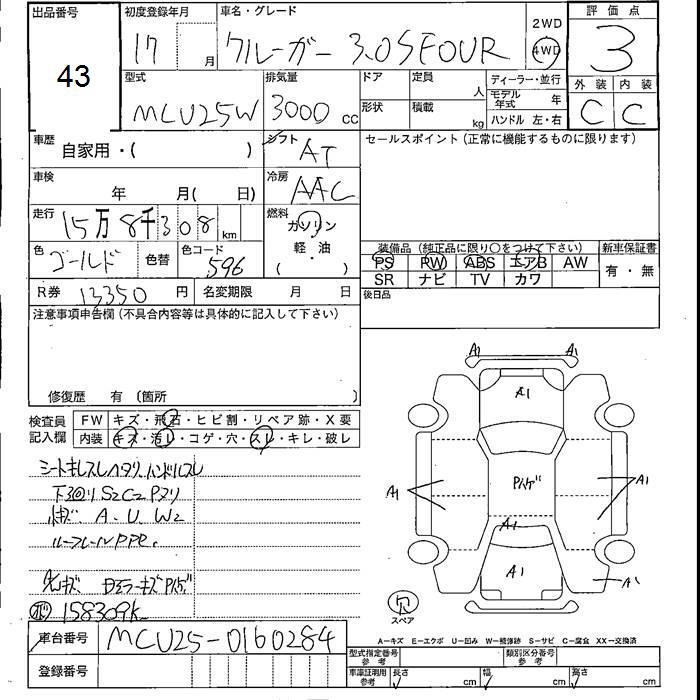 出品番号
43
初度登録年月
17 月
車名・グレード
クルーガー 3.0S FOUR
2WD
4WD
評価点
3
型式
MCU25W
排気量
3000 cc
ドア
形状
定員
人
積載
kg
ディーラー・並行
モデル年式 年
ハンドル 左・右
外装 内装
C C
車歴
自家用・( )
シフト
AT
セールスポイント(正常に機能するものに限ります)
車検
年 月( 日)
冷房
AAC
走行
15万8千308 km
燃料
ガソリン
軽・油
( )
色
ゴールド
色替
色コード
596
装備品(純正品に限り○をつけて下さい)
PS PW ABS エアB AW
SR ナビ TV カワ
新車保証書
有・無
R券 13350 円
名変期限 月 日
後日品
注意事項申告欄(不具合内容等は具体的に記入して下さい)
修復歴 有 (箇所
検査員記入欄
FW キズ・飛石・ヒビ割・リペア跡・X要
内装 キズ・汚レ・コゲ・穴・スレ・キレ・破レ
シートキレスレヘタリ ハンドルスレ
下回り S2C2 Pヌリ
A.U.W2
ルーフレール
158309K
A1 A1
A1
A1
A1
A1
A1
A1
スペア
A―キズ E―エクボ U―凹み W―補修跡 S―サビ C―腐食 XX―交換済
車台番号
MCU25-0160284
登録番号
型式指定番号 参考
類別区分番号 参考
車庫証明用 参考
長さ cm
幅 cm
高さ cm